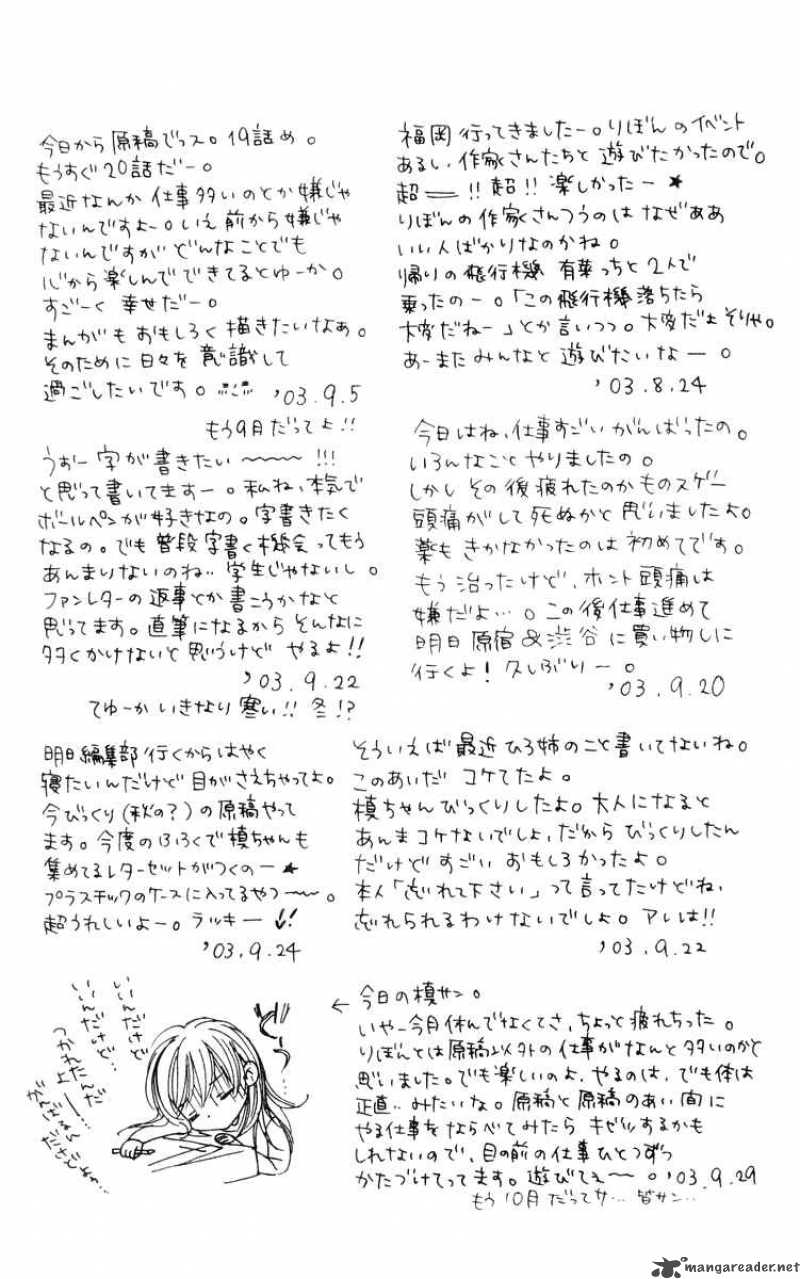 福岡行ってきましたー。りぼんのイベント
あるし、作家さんたちと遊びたかったので。
超――!!超!!楽しかったー★
りぼんの作家さんつうのはなぜああ
いい人ばかりなのかね。
帰りの飛行機 有菜っちと2人で
乗ったのー。「この飛行機落ちたら
大変だねー」とか言いつつ。大変だよそりゃ。
あーまたみんなと遊びたいなー。
'03.8.24
今日から原稿でっス。19話め。
もうすぐ20話だー。
最近なんか仕事多いのとか嫌じゃ
ないんですよー。いえ前から嫌じゃ
ないんですがどんなことでも
心から楽しんでできてるとゆーか。
すごーく幸せだー。
まんがもおもしろく描きたいなぁ。
そのために日々を意識して
過ごしたいです。
'03.9.5
もう9月だってよ!!
今日はね、仕事すごいがんばったの。
いろんなことやりましたの。
しかしその後疲れたのかものスゲー
頭痛がして死ぬかと思いましたよ。
薬もきかなかったのは初めてです。
もう治ったけど、ホント頭痛は
嫌だよ…。この後仕事進めて
明日原宿&渋谷に買い物しに
行くよ!久しぶりー。
'03.9.20
うおー字が書きたい〜〜〜!!!
と思って書いてますー。私ね、本気で
ボールペンが好きなの。字書きたく
なるの。でも普段字書く機会ってもう
あんまりないのね‥学生じゃないし。
ファンレターの返事とか書こうかなと
思ってます。直筆になるからそんなに
多くかけないと思うけどやるよ!!
'03.9.22
てゆーかいきなり寒い!!冬!?
そういえば最近ひろ姉のこと書いてないね。
このあいだコケてたよ。
槙ちゃんびっくりしたよ。大人になると
あんまコケないでしょ、だからびっくりしたん
だけどすごいおもしろかったよ。
本人「忘れて下さい」って言ってたけどね、
忘れられるわけないでしょ。アレは!!
'03.9.22
明日編集部行くからはやく
寝たいんだけど目がさえちゃってよ。
今びっくり(秋の?)の原稿やって
ます。今度のふろくで槙ちゃんも
集めてるレターセットがつくのー★
プラスチックのケースに入ってるやつー〜。
超うれしいよー。ラッキー!!
'03.9.24
←今日の槙サン。
いやー今月休んでなくてさ、ちょっと疲れちった。
りぼんとは原稿以外の仕事がなんと多いのかと
思いました。でも楽しいのよ、やるのは、でも体は
正直‥みたいな。原稿と原稿のあい間に
やる仕事をならべてみたらキゼツするかも
しれないので、目の前の仕事ひとつずつ
かたづけてってます。遊びてぇ〜。'03.9.29
もう10月だってサ…皆サン‥
いいんだけど
いいんだけど‥
つかれたんだ
よー…
mangareader.net